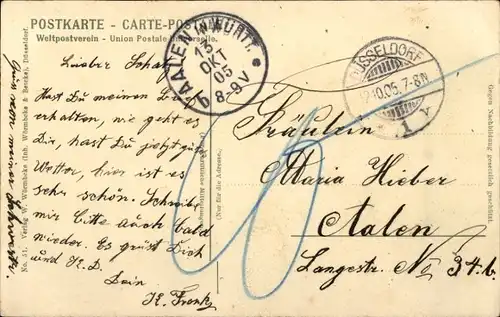 POSTKARTE - CARTE-POSTALE
Weltpostverein - Union Postale universelle.
AALEN IN WÜRTT.
13
OKT
05
8-9 V
b
DÜSSELDORF
12.10.05. 7-8N
1 v
Lieber Schatz
Hast Du meinen B
erhalten, wie geht es
Dir, hast Du jetzt gutes
Wetter, hier ist es
sehr schön. Schreibe
mir bitte auch bald
wieder. Es grüst Dich
und K. D.
Dein
K. Frank
Fräulein
Maria Hieber
Aalen
Langestr. No 34. b.
(Nur für die Adresse.)
Gegen Nachbildung gesetzlich geschützt.
No. 51. Verlag W. Wörmbcke (Inh. Wörmbcke & Baecke), Düsseldorf.
meiner Schwester